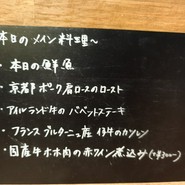 本日のメイン料理~
・本日の鮮魚
・京都ポーク肩ロースのロースト
・アイルランド牛のバベットステーキ
・フランス ブルターニュ産 仔牛のカツレツ
・国産牛ホホ肉の赤ワイン煮込み